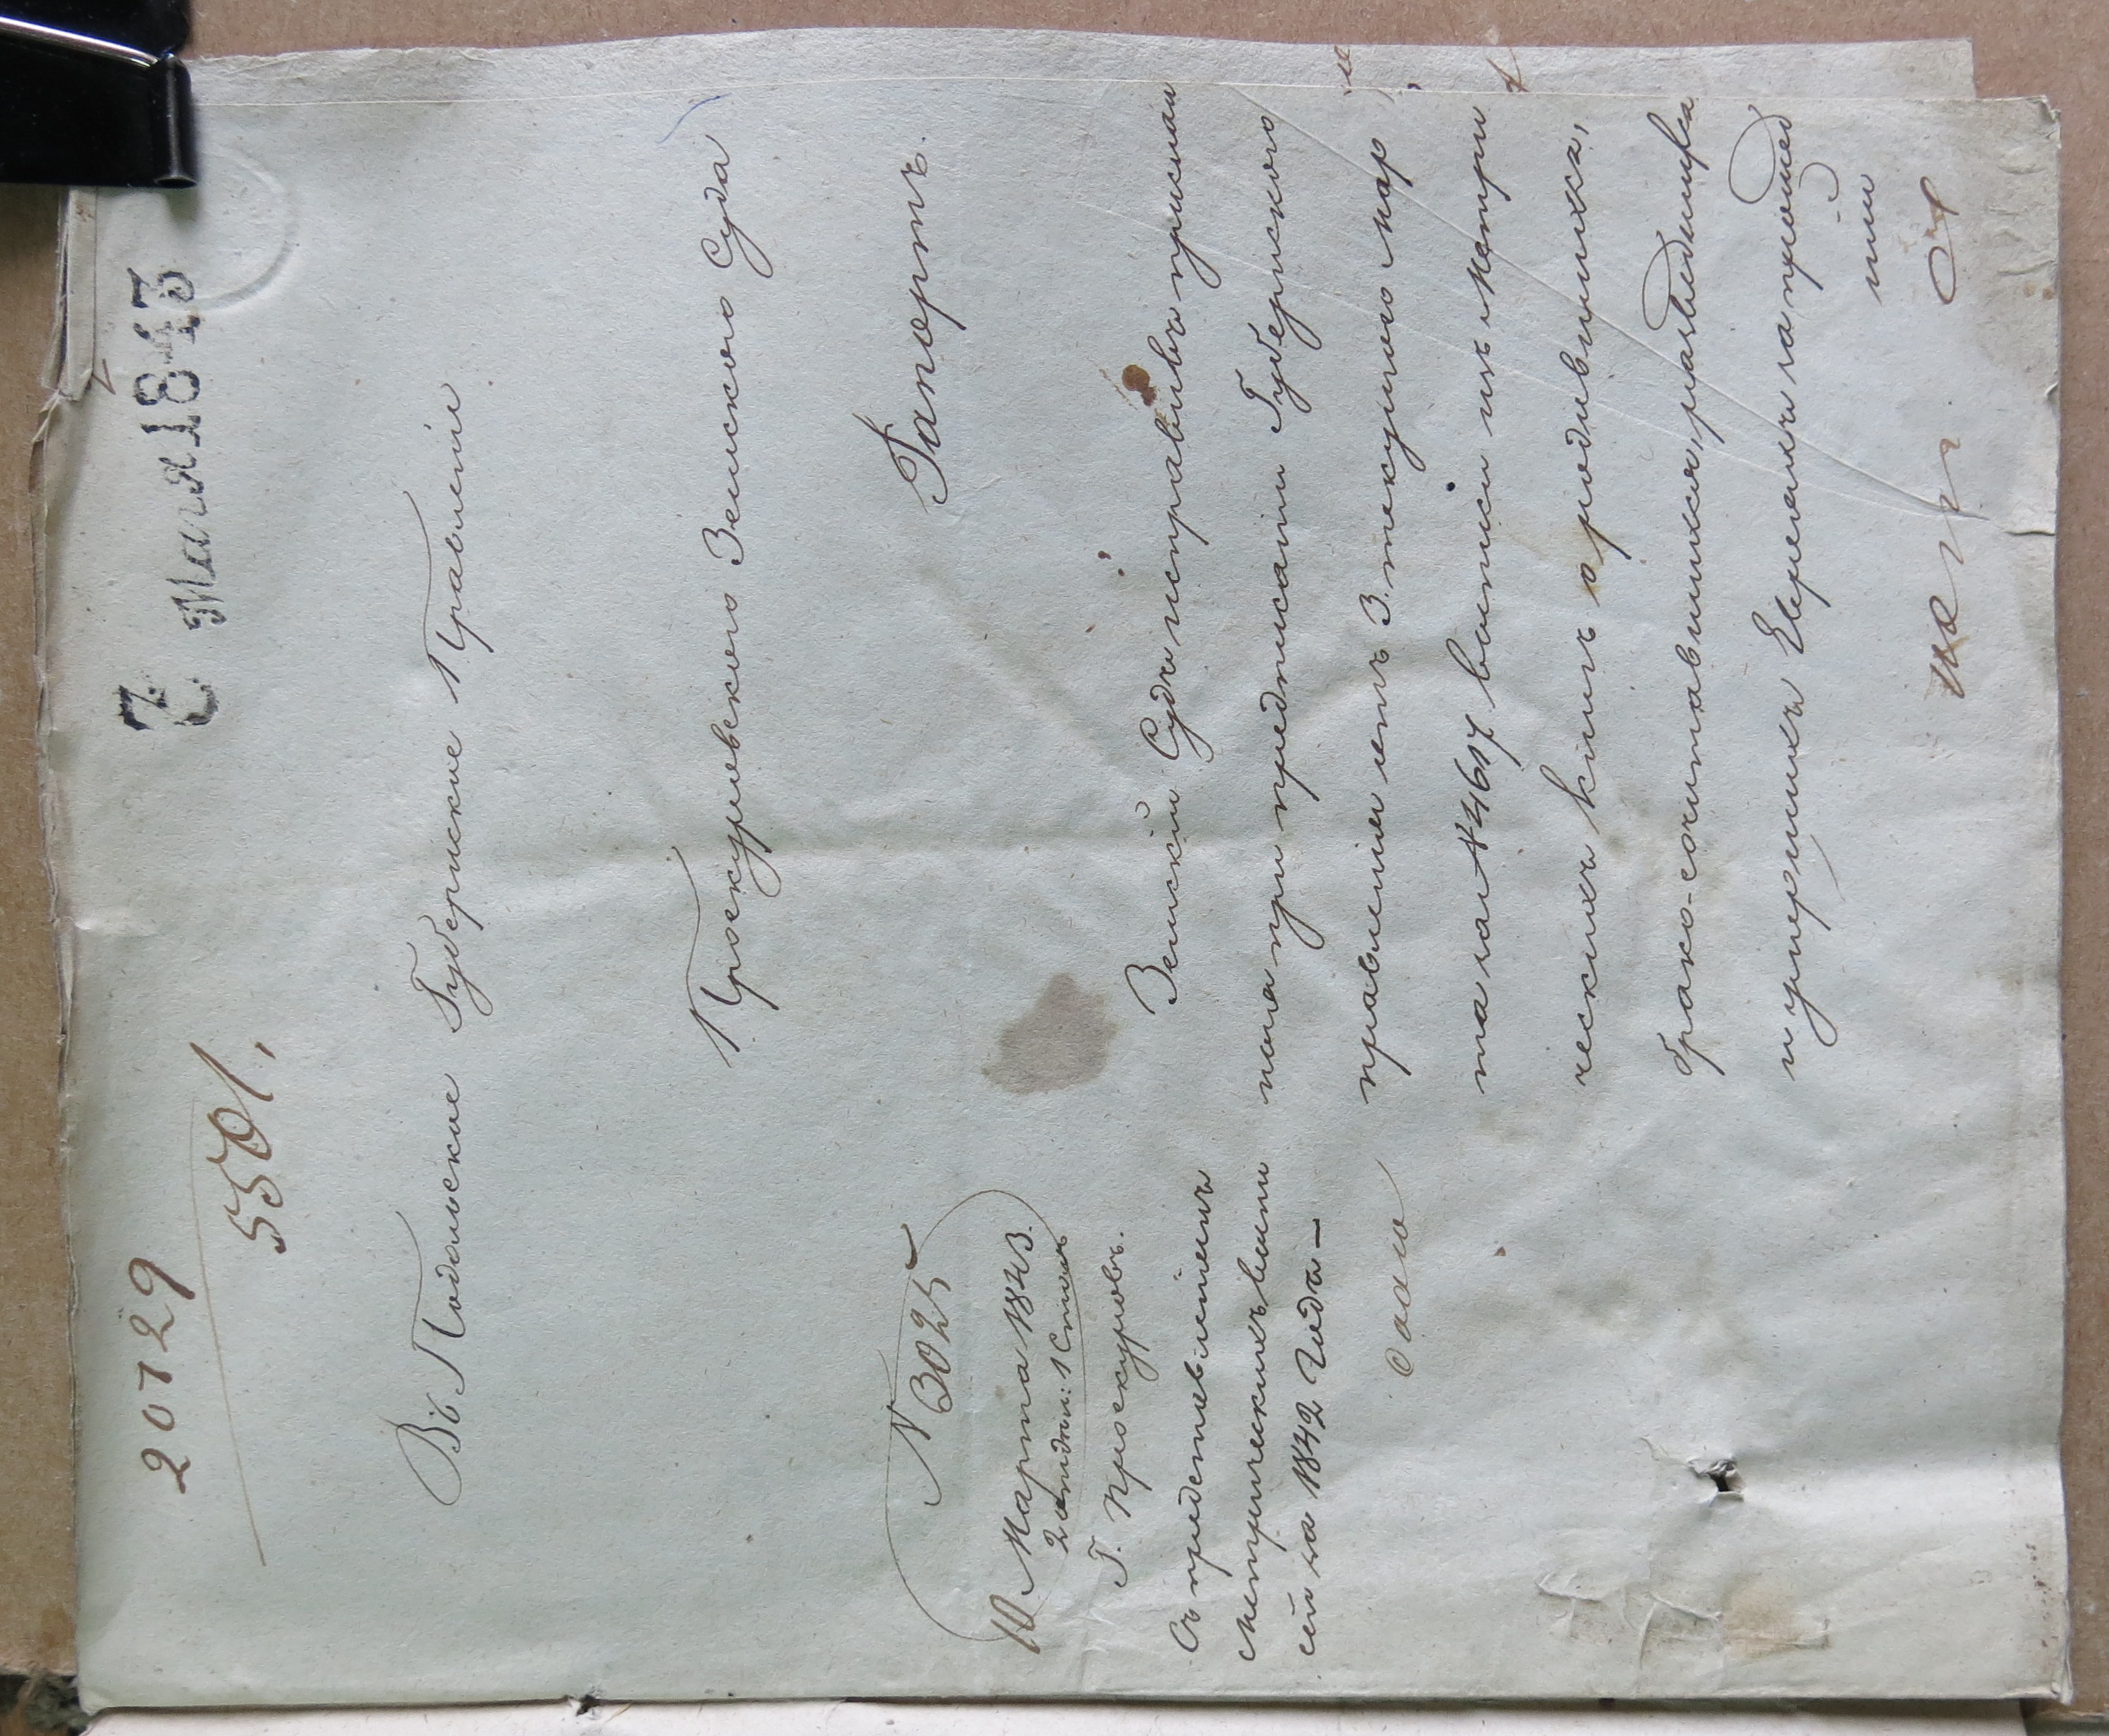 20729
5501,
2 Мая 1843
Въ Подольское Губернское Правленіе
Проскуровского Земского Суда
Рапортъ.
N 3025
10 Марта 1843.
2 отдѣл: 1 Столъ
Г. Проскуровъ.
Съ представленіемъ
метрическихъ выпи
сей за 1842 Годъ —
Земскій Судъ исправивъ прислан
ныя при предписаніи Губернского
правленія отъ 3 текущего мар
та за N 4617 выписи изъ метри
ческихъ книгъ о родившихся,
брако-сочитавшихся, разведшихся
и умершихъ Евреяхъ за прошед
шій